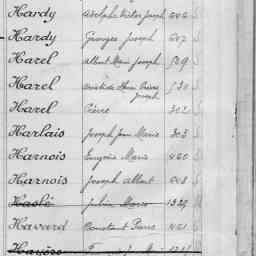 Hardy Adolphe Victor Joseph
Hardy Georges Joseph
Harel Albert Marie Joseph
Harel Aristide Henri Pierre
Joseph
Harel Pierre 302
Harlais Joseph Jean Marie 303
Harnois Eugène Marie 460
Harnois Joseph Albert
Haslé Julien Marie 1329
Havard Constant Pierre 461
Hayère